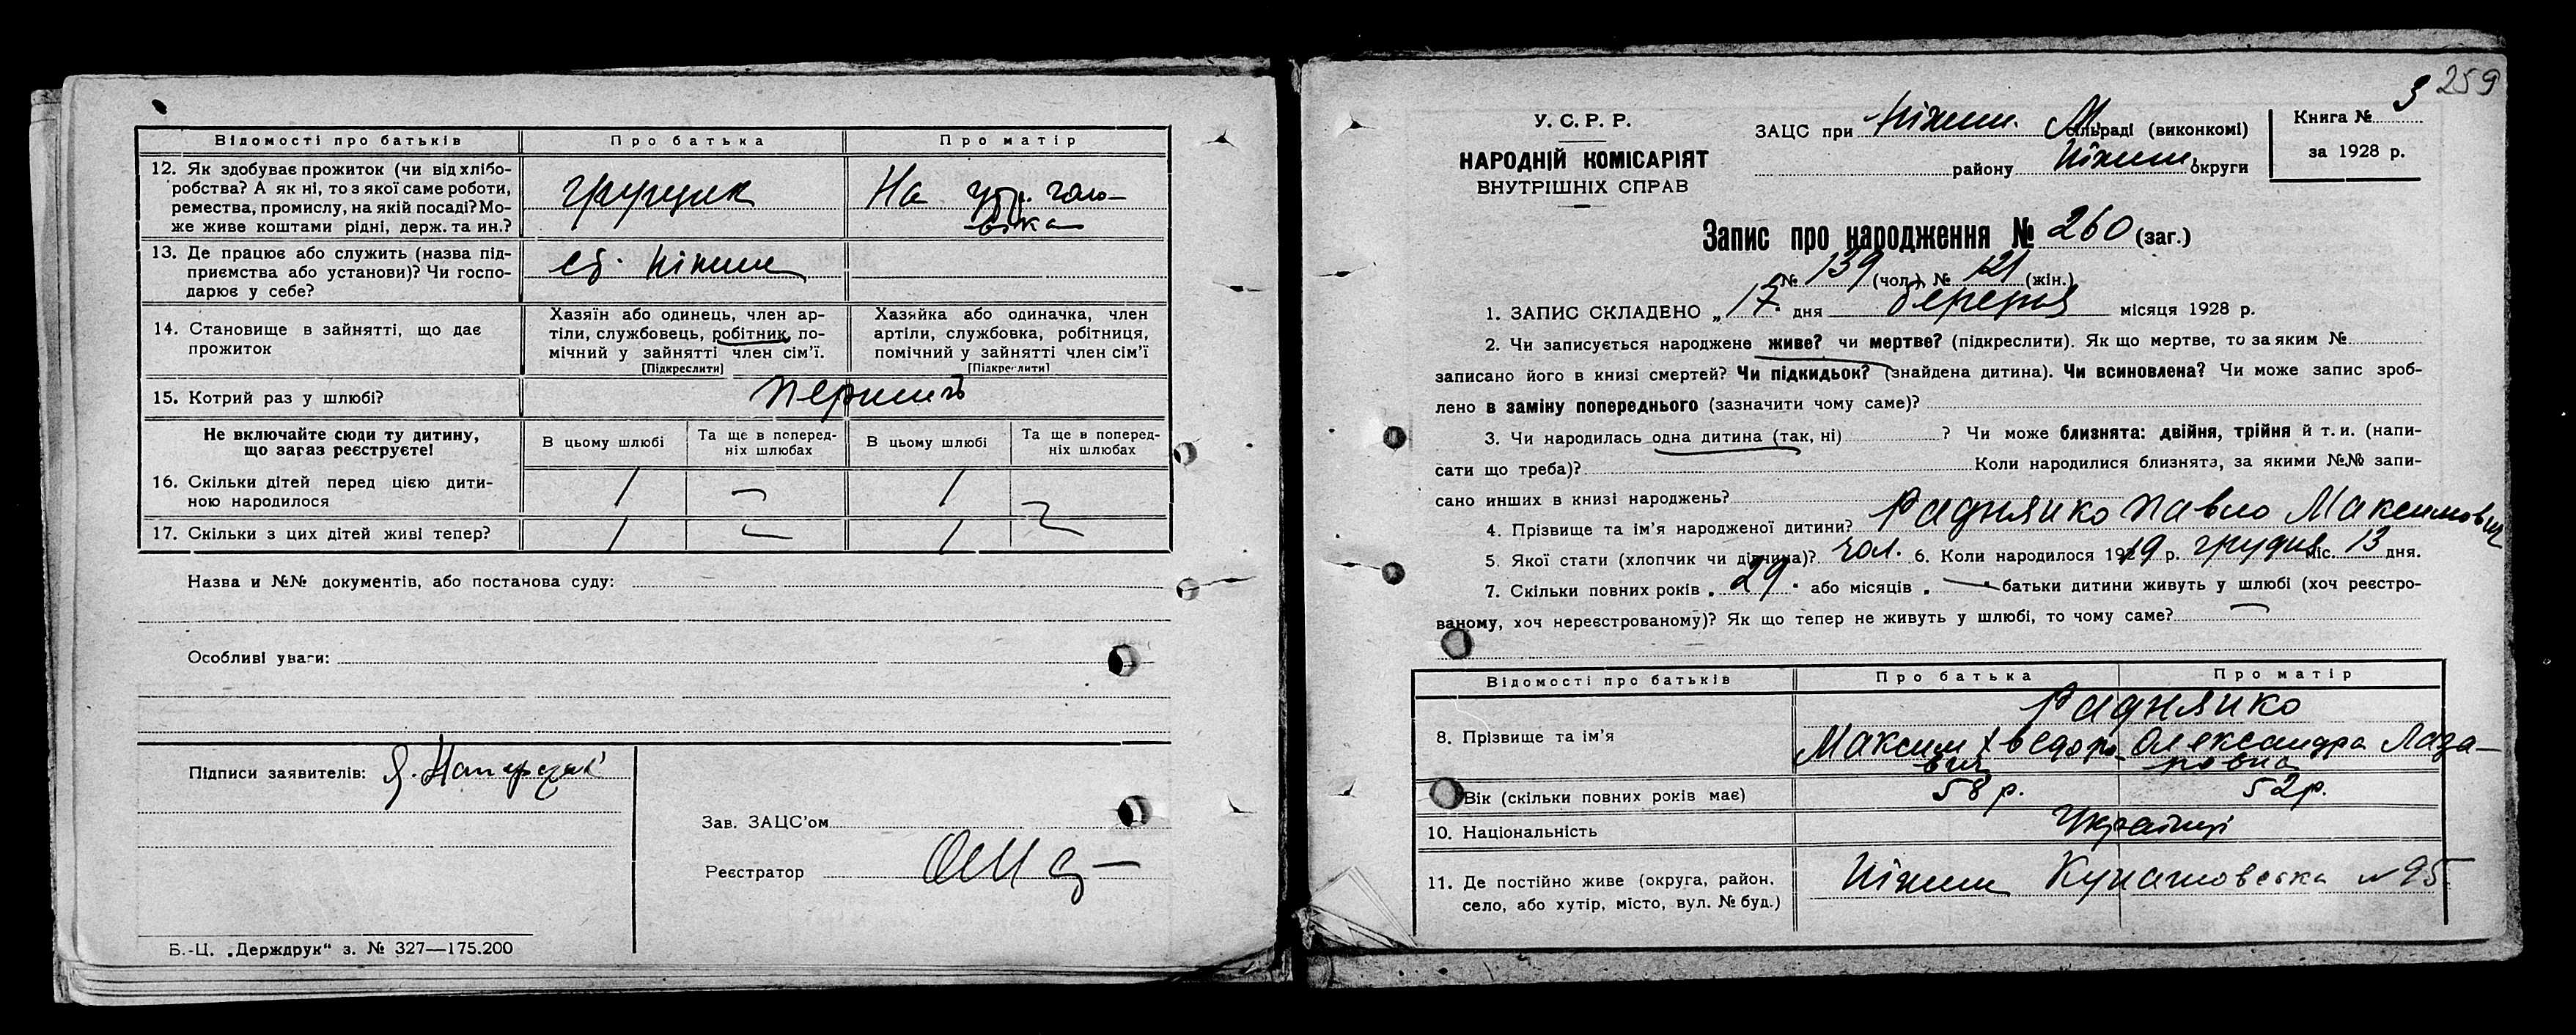 Відомості про батьків
Про батька
Про матір
12. Як здобуває прожиток (чи від хлібо-
робства? А як ні, то з якої саме роботи,
ремества, промислу, на якій посаді? Мо-
же живе коштами рідні, держ. та ин.?
На утр. чоло-
віка
13. Де працює або служить (назва під-
приємства або установи)? Чи госпо-
дарює у себе?
ст. Ніжин
14. Становище в зайнятті, що дає
прожиток
Хазяїн або одинець, член ар-
тіли, службовець, робітник, по-
мічний у зайнятті член сім'ї.
[Підкреслити]
Хазяйка або одиначка, член
артіли, службовка, робітниця,
помічний у зайнятті член сім'ї
[Підкреслити]
15. Котрий раз у шлюбі?
перший
Не включайте сюди ту дитину,
що загаз реєструєте!
В цьому шлюбі
Та ще в поперед-
ніх шлюбах
В цьому шлюбі
Та ще в поперед-
ніх шлюбах
16. Скільки дітей перед цією дити-
ною народилося
1 — 1 —
17. Скільки з цих дітей живі тепер?
1 — 1 —
Назва и №№ документів, або постанова суду:
Особливі уваги:
Підписи заявителів:
Зав. ЗАЦС'ом
Реєстратор
Б.-Ц. „Держдрук" з. № 327—175.200
259
У. С. Р. Р.
НАРОДНІЙ КОМІСАРІЯТ
ВНУТРІШНІХ СПРАВ
ЗАЦС при Ніжин. М. сільраді (виконкомі)
району Ніжин. округи
Книга № 3
за 1928 р.
Запис про народження № 260 (заг.)
№ 139 (чол.), № 121 (жін.)
1. ЗАПИС СКЛАДЕНО „17" дня березня місяця 1928 р.
2. Чи записується народжене живе? чи мертве? (підкреслити). Як що мертве, то за яким №
записано його в книзі смертей? Чи підкидьок? (знайдена дитина). Чи всиновлена? Чи може запис зроб-
лено в заміну попереднього (зазначити чому саме)?
3. Чи народилась одна дитина (так, ні) ? Чи може близнята: двійня, трійня й т. и. (напи-
сати що треба)? Коли народилися близнята, за якими №№ запи-
сано инших в книзі народжень?
4. Прізвище та ім'я народженої дитини? Раднянко Павло Максимович
5. Якої стати (хлопчик чи дівчина)? чол. 6. Коли народилося 1919 р. грудня міс. 13 дня.
7. Скільки повних років „29" або місяців „—" батьки дитини живуть у шлюбі (хоч реєстро-
ваному, хоч нереєстрованому)? Як що тепер не живуть у шлюбі, то чому саме? —
Відомості про батьків
Про батька
Про матір
8. Прізвище та ім'я
Раднянко
Максим Хведоро-
вич
Олександра Лаза-
ровна
Вік (скільки повних років має)
58 р.
52 р.
10. Національність
Українці
11. Де постійно живе (округа, район.
село, або хутір, місто, вул. № буд.)
Ніжин Кунашовська № 95